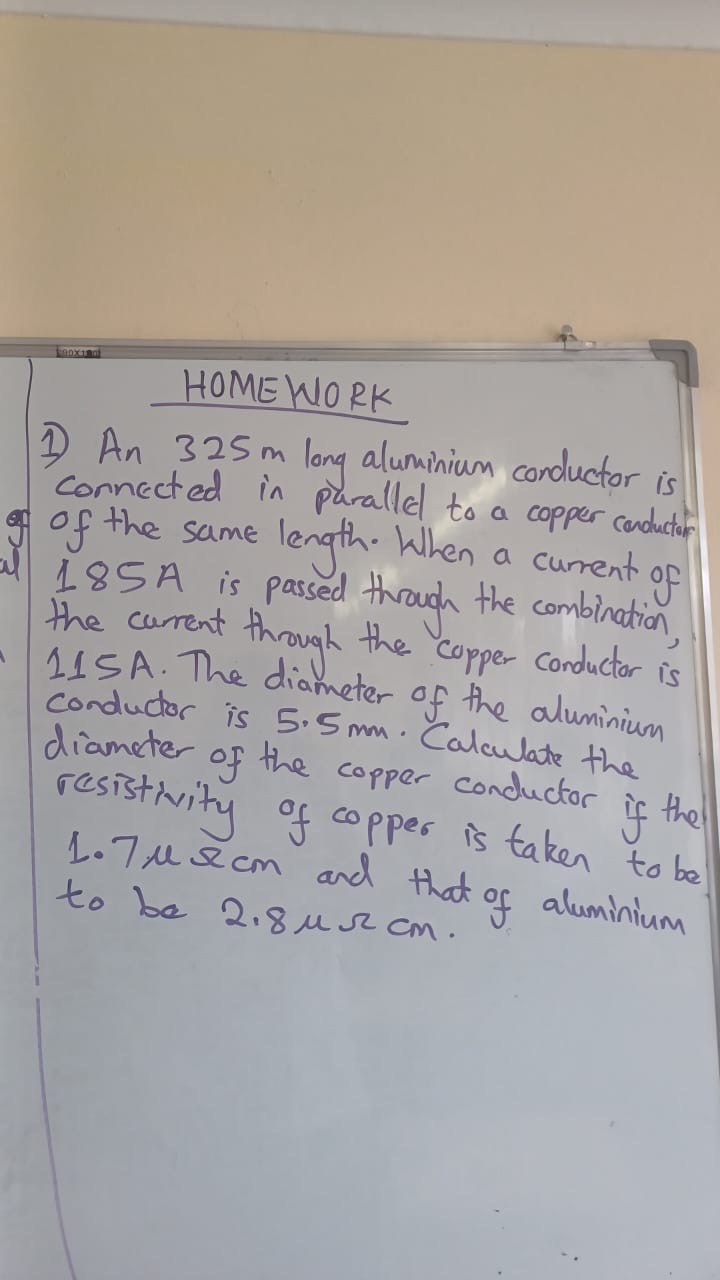 HOMEWORK
1) An 325m long aluminium conductor is
connected in parallel to a copper conductor
of the same length. When a current of
185A is passed through the combination,
the current through the copper conductor is
115A. The diameter of the aluminium
conductor is 5.5mm. Calculate the
diameter of the copper conductor if the
resistivity of copper is taken to be
1.7μΩcm and that of aluminium
to be 2.8μΩcm.